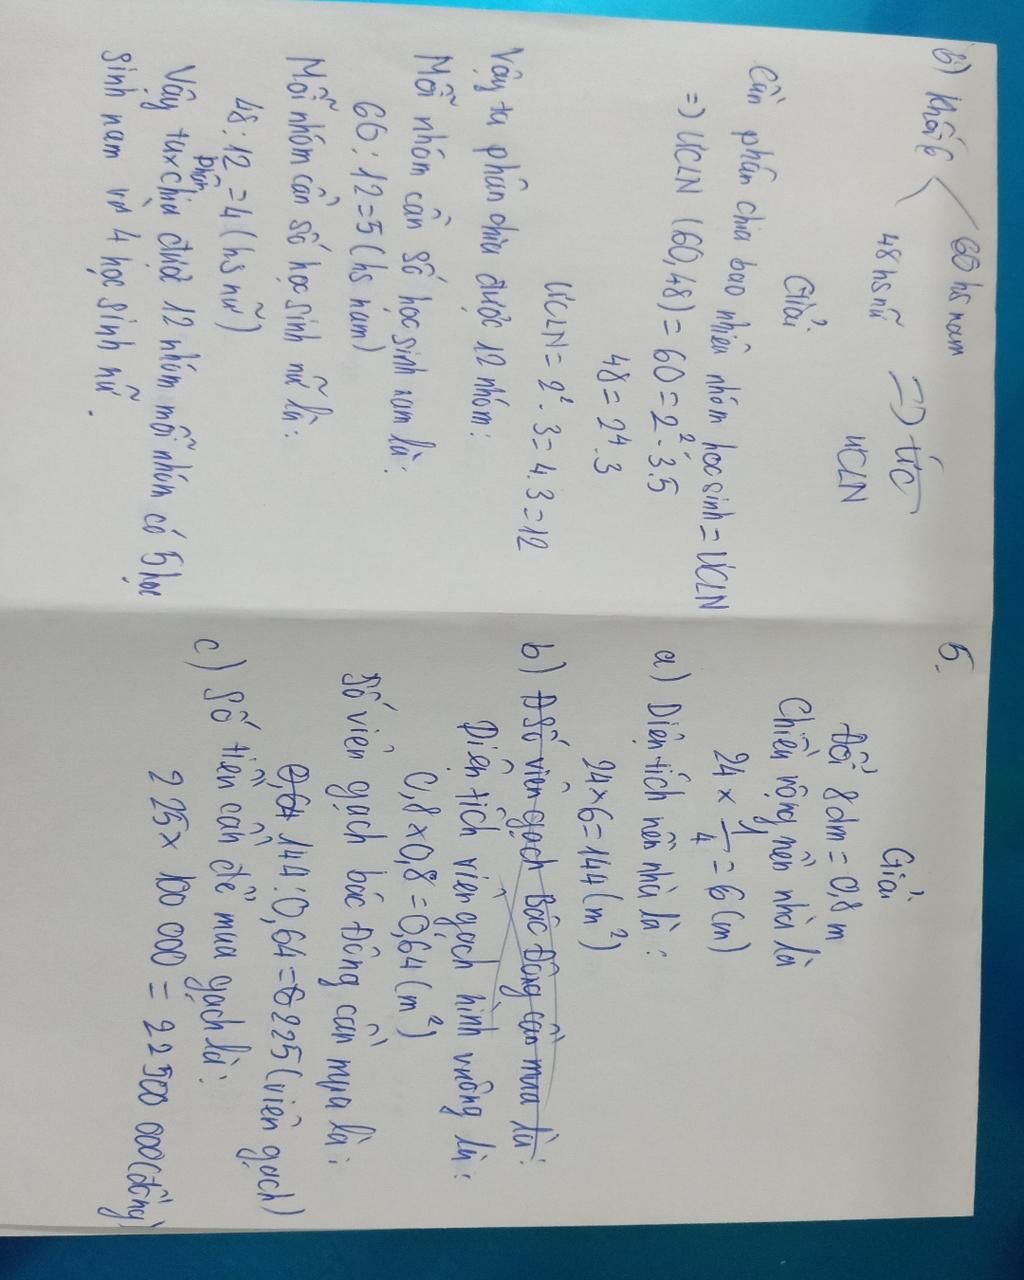 6) Khối 6 < 60 hs nam
48 hs nữ => ƯC
ƯCLN
Giải
Cần phân chia bao nhiêu nhóm học sinh = ƯCLN
=> ƯCLN (60,48) = 60 = 2².3.5
48 = 2⁴.3
ƯCLN = 2².3 = 4.3 = 12
Vậy ta phân chia được 12 nhóm:
Mỗi nhóm cần số học sinh nam là:
60 : 12 = 5 (hs nam)
Mỗi nhóm cần số học sinh nữ là:
48 : 12 = 4 (hs nữ)
Vậy ta phân chia được 12 nhóm mỗi nhóm có 5 học
sinh nam và 4 học sinh nữ.
5.
Giải
Đổi 8dm = 0,8 m
Chiều rộng nền nhà là
24 × 1/4 = 6 (m)
a) Diện tích nền nhà là:
24 × 6 = 144 (m²)
b) Số viên gạch Bác Đông cần mua là:
Diện tích viên gạch hình vuông là:
0,8 × 0,8 = 0,64 (m²)
Số viên gạch bác Đông cần mua là:
0,64 144 : 0,64 = 225 (viên gạch)
c) Số tiền cần để mua gạch là:
225 × 100 000 = 22 500 000 (đồng)